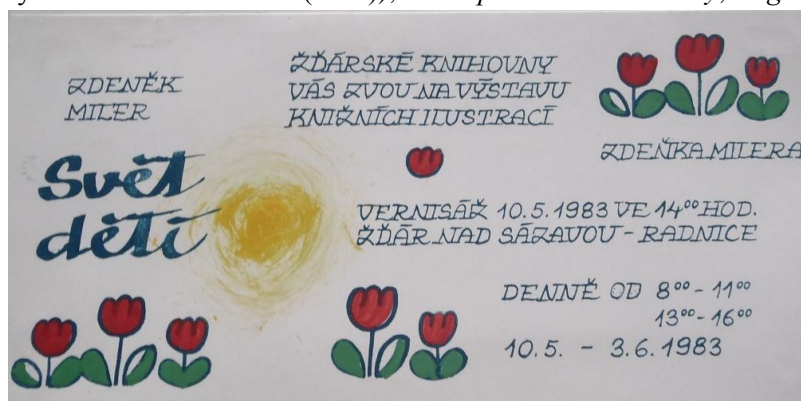 ZDENĚK
MILER
Svět
dětí
ŽĎÁRSKÉ KNIHOVNY
VÁS ZVOU NA VÝSTAVU
KNIŽNÍCH ILUSTRACÍ
ZDEŇKA MILERA
VERNISÁŽ 10.5.1983 VE 14⁰⁰ HOD.
ŽĎÁR NAD SÁZAVOU - RADNICE
DENNĚ OD 8⁰⁰ - 11⁰⁰
13⁰⁰ - 16⁰⁰
10.5. - 3.6.1983